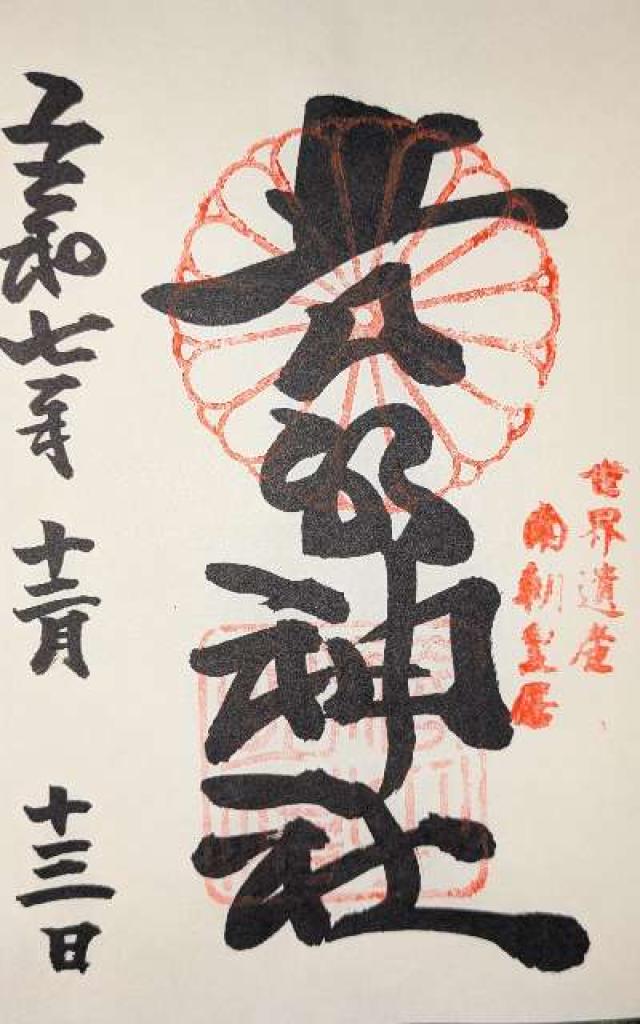 世界遺産
南朝皇居
吉水神社
令和七年 十二月 十三日